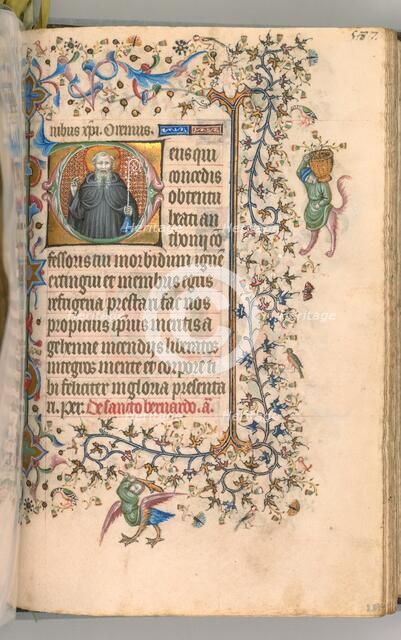 557.
nibus xp̄i. Oremus.
eus qui
concedis
obtentu
beati an
thonij co
fessoris tui morbidum igne
extingui et membris egris
refrigeria prestari fac nos
propicius ipius meritis a
gehenne incendijs liberatos
integros mente et corpore ti
bi feliciter in gloria presenta
ri. Per. De sancto bernardo. a̅.
Heritage
Heritage
Heritage
Heritage